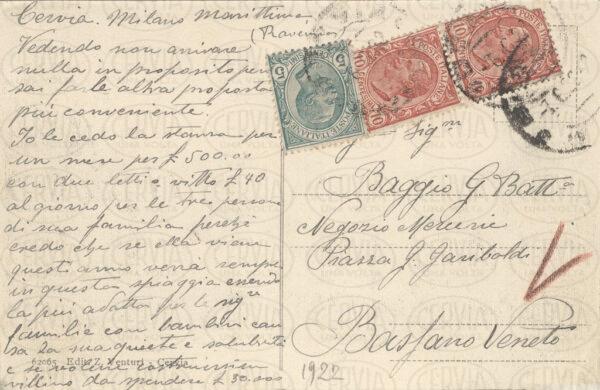 Cervia. Milano Marittima
(Ravenna)
Vedendo non arrivare
nulla in proposito pen
sai farle altra proposta
più conveniente.
Io le cedo la stanza per
un mese per £ 500.00
con due letti e vitto £ 40
al giorno per le tre persone
di sua famiglia perchè
credo che se ella viene
quest'anno verrà sempre
in questa spiaggia essendo
la più adatta per le sig.re
famiglie con bambini cau
sa la sua quiete e salubrità
e se volesse costruirsi un
villino da spendere £ 30.000
62065 Ediz. Z. Venturi - Cervia
Sig.
Baggio G Batta
Negozio Mercerie
Piazza G. Garibaldi
Bassano Veneto
1922
POSTE ITALIANE
5
POSTE ITALIANE
10
POSTE ITALIANE
10
CERVIA